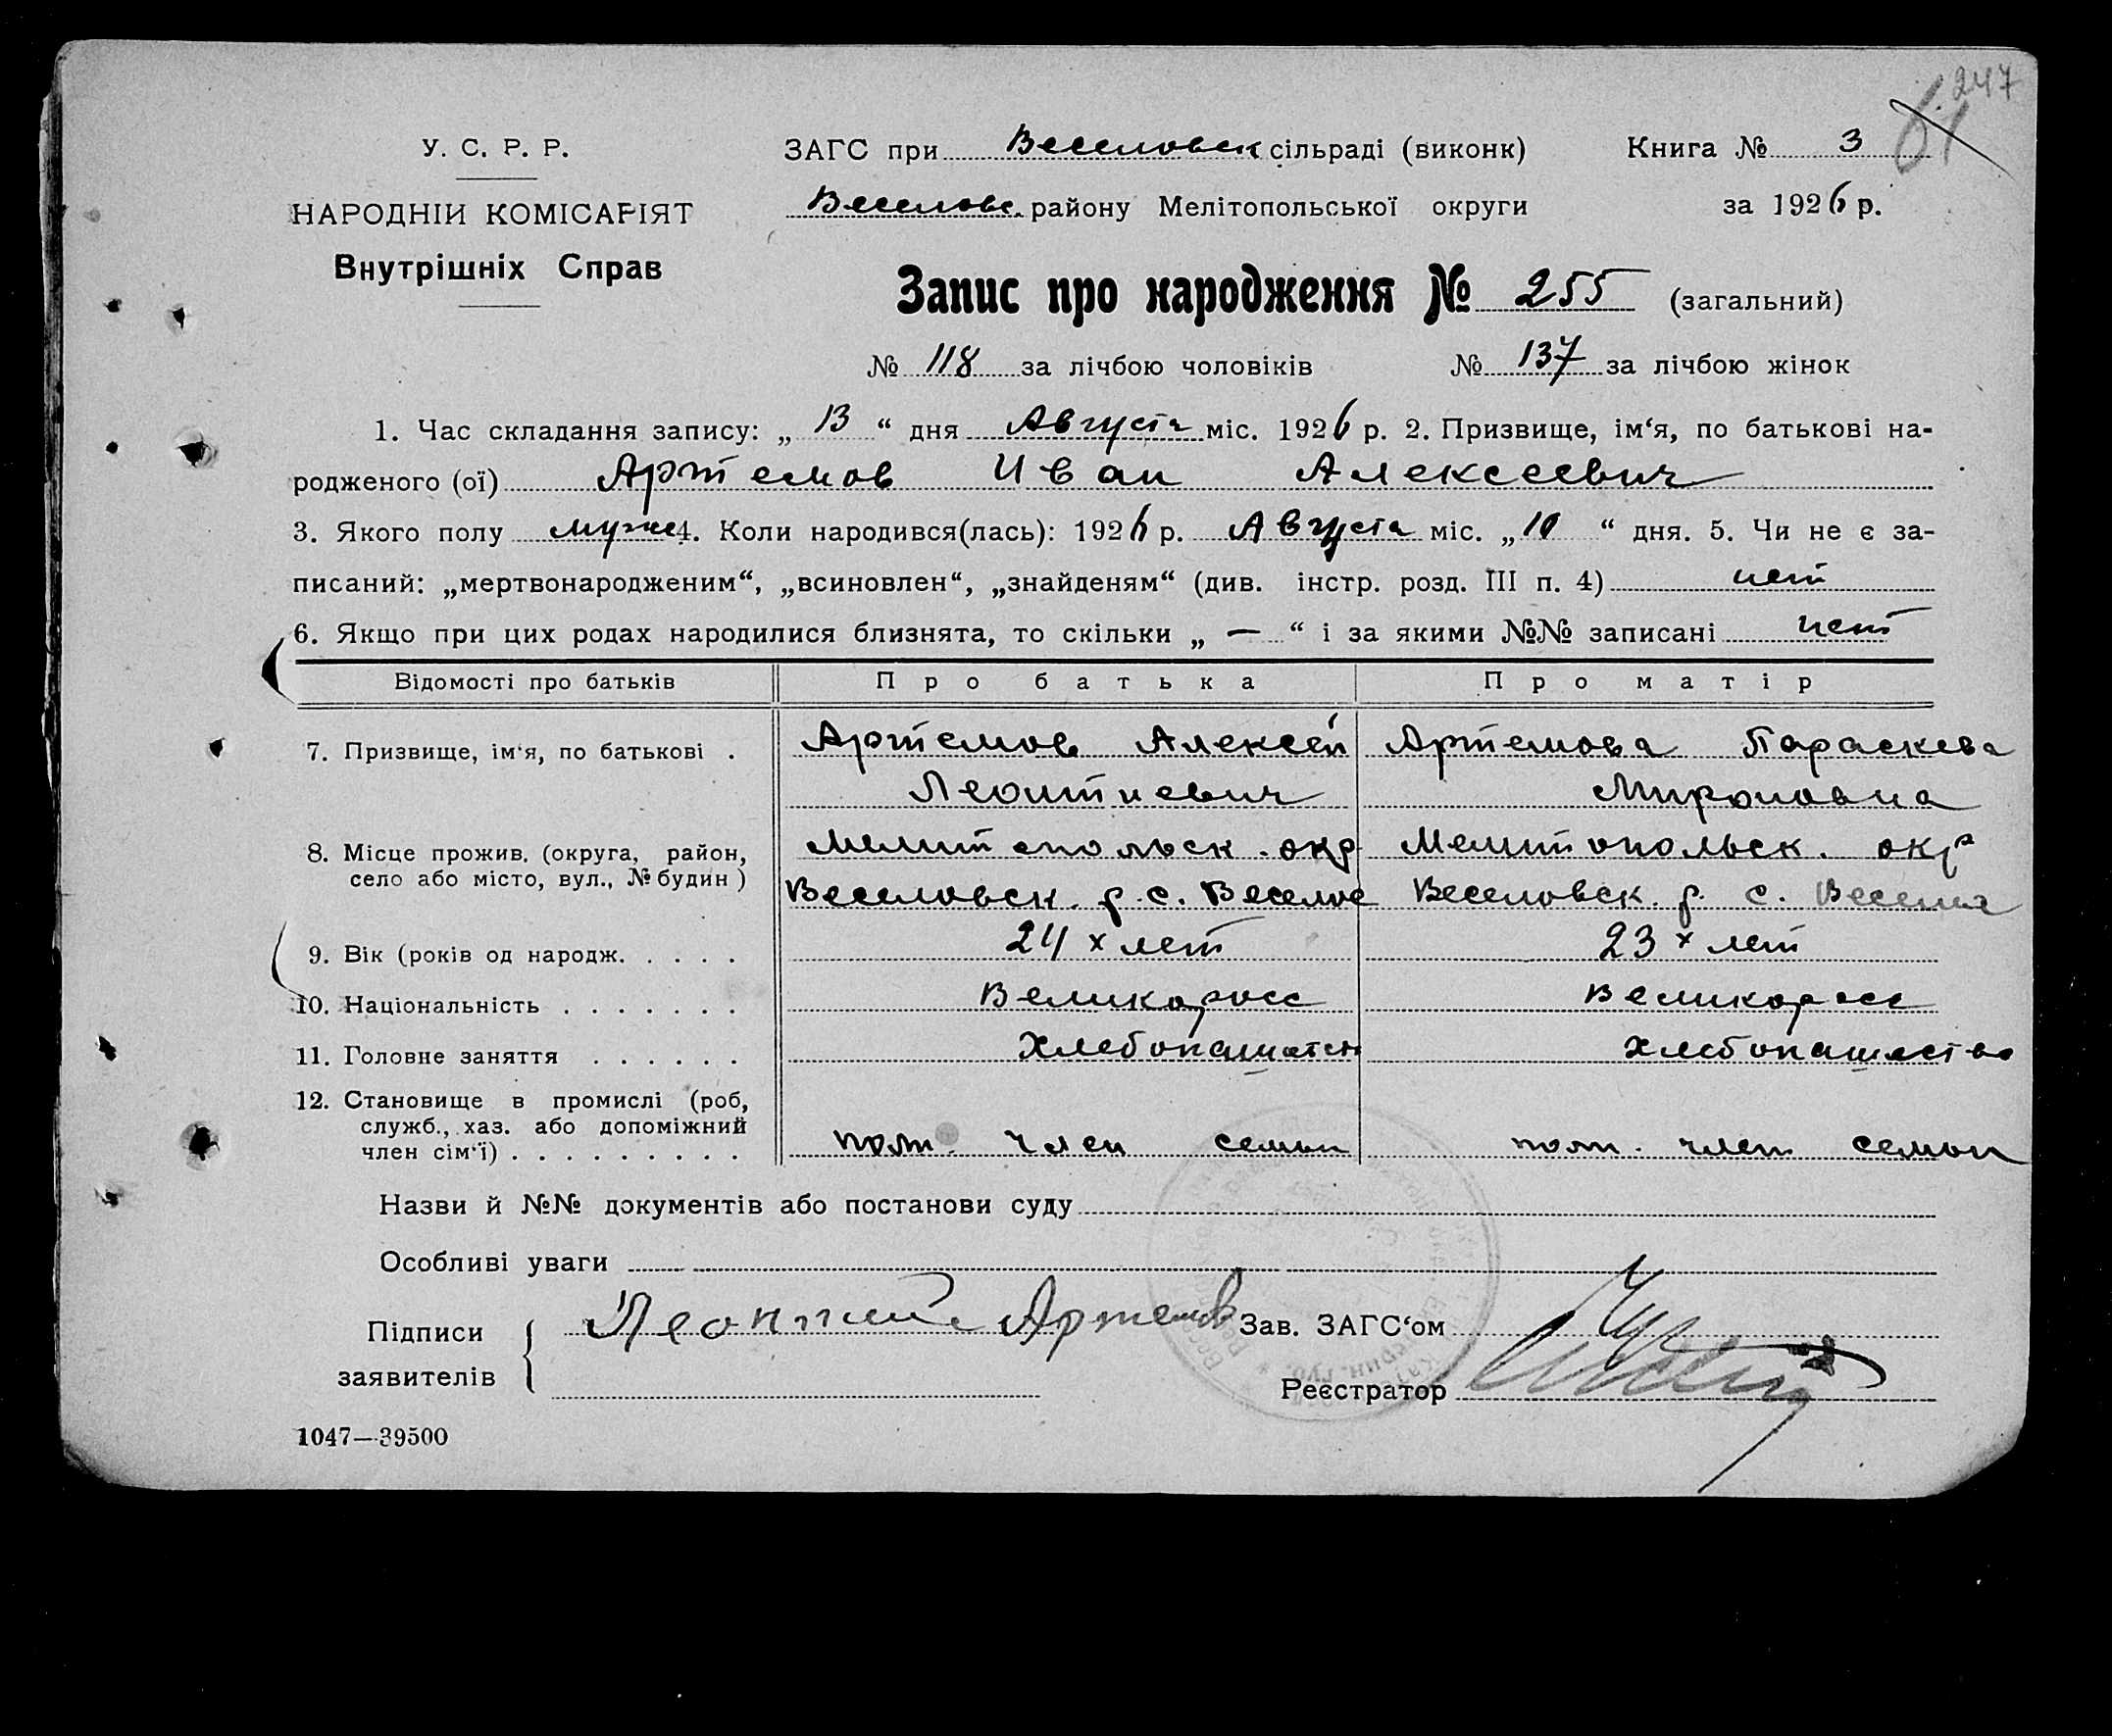 247
61
У. С. Р. Р.
НАРОДНІЙ КОМІСАРІЯТ
Внутрішніх Справ
ЗАГС при Веселовск сільраді (виконк) Книга № 3
Веселовс. району Мелітопольської округи за 1926 р.
Запис про народження № 255 (загальний)
№ 118 за лічбою чоловіків № 137 за лічбою жінок
1. Час складання запису: „ 13 “ дня Августа міс. 1926 р. 2. Призвище, ім‘я, по батькові на-
родженого (ої) Артемов Иван Алексеевич
3. Якого полу муже 4. Коли народився(лась): 1926 р. Августа міс. „ 10 “ дня. 5. Чи не є за-
писаний: „мертвонародженим“, „всиновлен“, „знайденям“ (див. інстр. розд. III п. 4) нет
6. Якщо при цих родах народилися близнята, то скільки „ — “ і за якими №№ записані нет
Відомості про батьків Про батька Про матір
7. Призвище, ім‘я, по батькові . Артемов Алексей Артемова Параскева
Леонтиевич Мироновна
8. Місце прожив. (округа, район, Мелитопольск. окр Мелитопольск. окр
село або місто, вул., № будин ) Веселовск. р. с. Веселое Веселовск. р. с. Веселое
9. Вік (років од народж. . . . . 24 х лет 23 х лет
10. Національність . . . . . . . Великоросс Великоросс
11. Головне заняття . . . . . . Хлебопашество хлебопашество
12. Становище в промислі (роб,
служб., хаз. або допоміжний
член сім‘ї) . . . . . . . . . член семьи член семьи
Назви й №№ документів або постанови суду
Особливі уваги
Підписи Леонтий Артемов Зав. ЗАГС‘ом
заявителів
Реєстратор
1047—39500